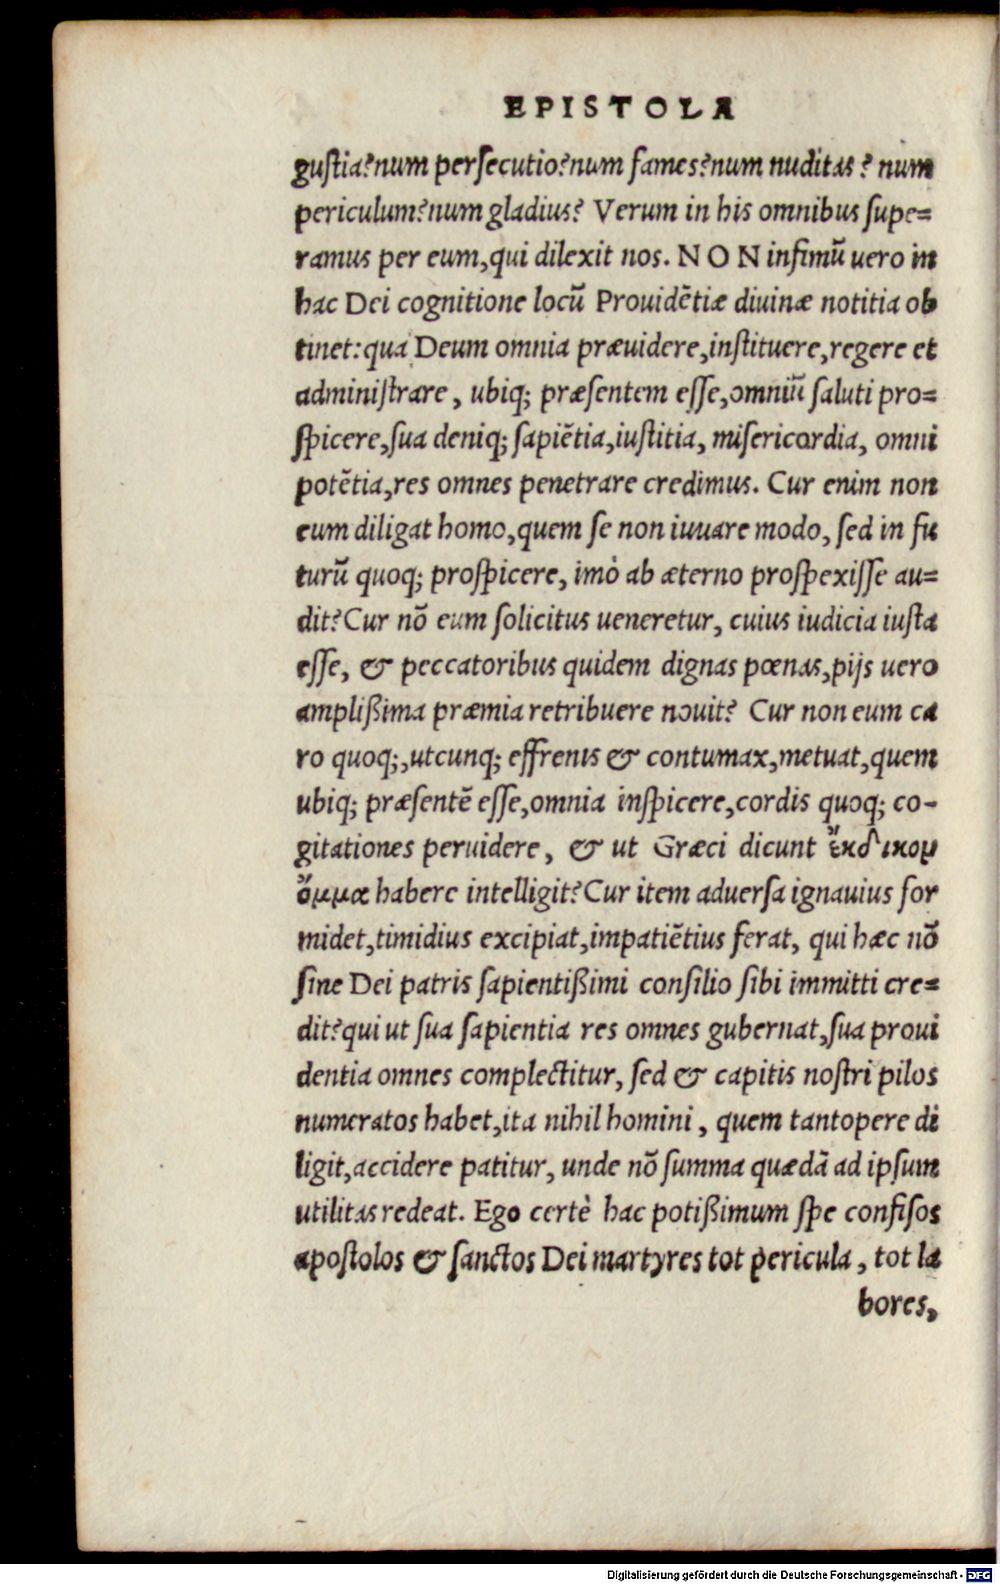 EPISTOLA
gustia?num persecutio?num fames?num nuditas? num
periculum?num gladius? Verum in his omnibus supe=
ramus per eum,qui dilexit nos. NON infimũ uero in
hac Dei cognitione locũ Prouidẽtiæ diuinæ notitia ob
tinet:qua Deum omnia præuidere,instituere,regere et
administrare, ubiq; præsentem esse,omniũ saluti pro=
spicere,sua deniq; sapiẽtia,iustitia, misericordia, omni
potẽtia,res omnes penetrare credimus. Cur enim non
eum diligat homo,quem se non iuuare modo, sed in fu
turũ quoq; prospicere, imò ab æterno prospexisse au=
dit?Cur nõ eum solicitus ueneretur, cuius iudicia iusta
esse, & peccatoribus quidem dignas pœnas,pijs uero
amplißima præmia retribuere nouit? Cur non eum ca
ro quoq;,utcunq; effrenis & contumax,metuat,quem
ubiq; præsentẽ esse,omnia inspicere,cordis quoq; co-
gitationes peruidere, & ut Græci dicunt ἔκδικον
ὄμμα habere intelligit?Cur item aduersa ignauius for
midet,timidius excipiat,impatiẽtius ferat, qui hæc nõ
sine Dei patris sapientißimi consilio sibi immitti cre=
dit?qui ut sua sapientia res omnes gubernat,sua proui
dentia omnes complectitur, sed & capitis nostri pilos
numeratos habet,ita nihil homini, quem tantopere di
ligit,accidere patitur, unde nõ summa quædã ad ipsum
utilitas redeat. Ego certè hac potißimum spe confisos
apostolos & sanctos Dei martyres tot pericula, tot la
bores,
Digitalisierung gefördert durch die Deutsche Forschungsgemeinschaft - DFG